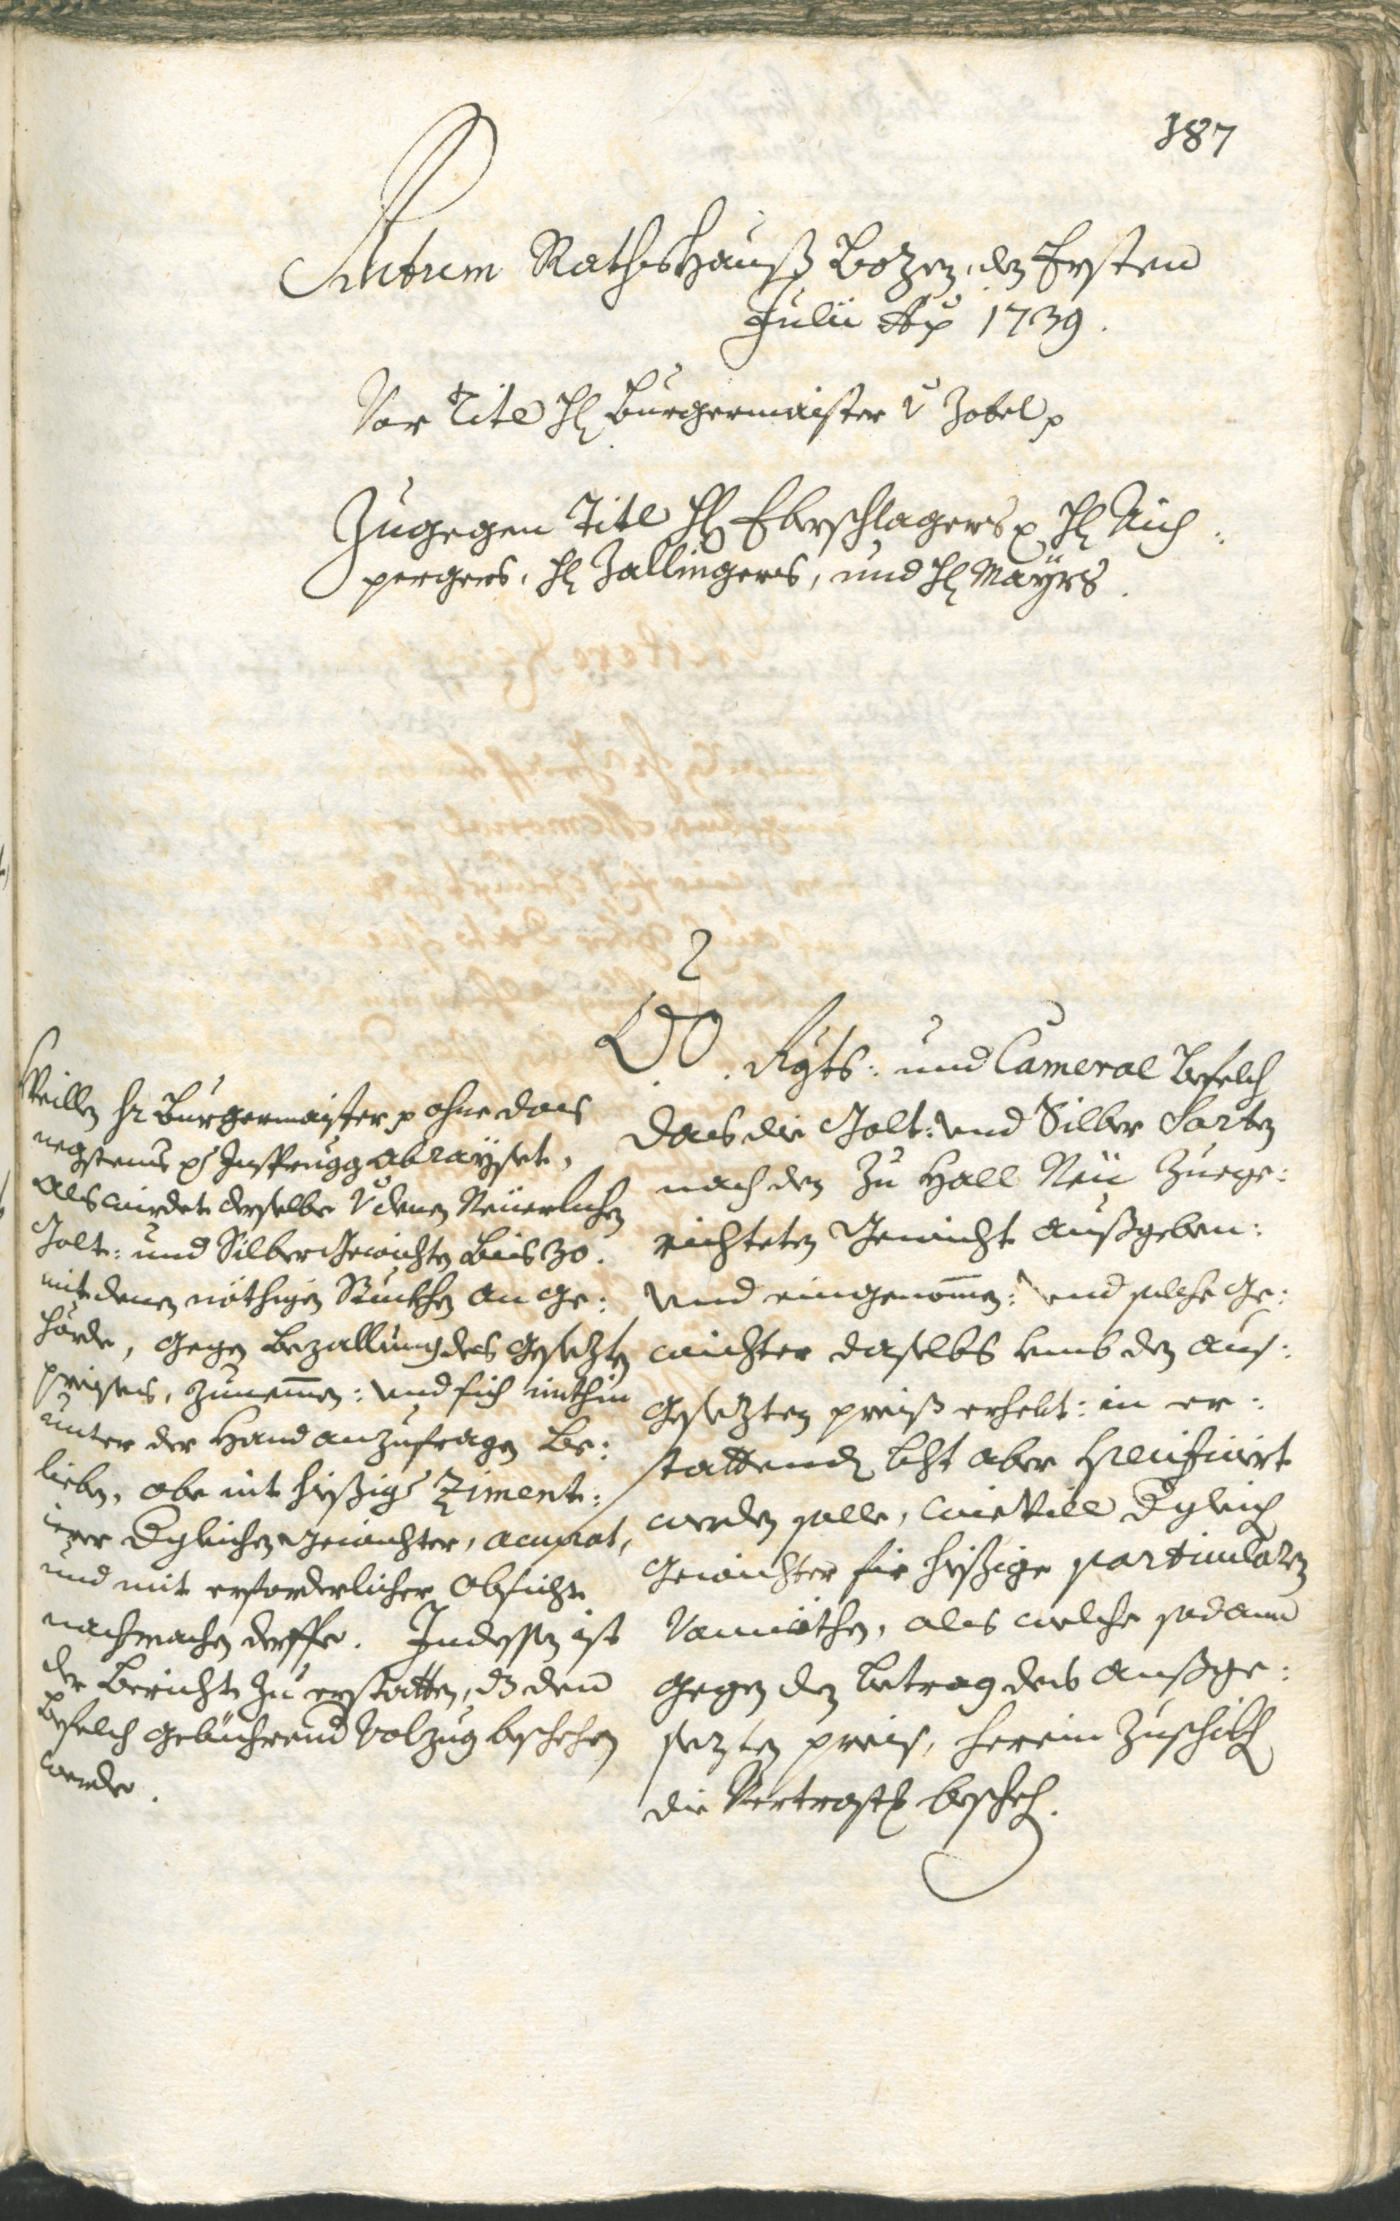 187
Actum Rathshauß Bozen, den Ersten
Julii Ao 1739.
Vor Titl H: Burgermaister v Zobel p
Zugegen Titl H: Eberschlagers p H: Aich:
pergers, H: Zallingers, und H: Mayrs.
2
Rgts: und Cameral Befelch
das die Golt: und Silber Sorten
nach den zu Hall Neu zuege:
richteten Gewicht außgeben:
und eingenomen: und solche Ge:
wichter daselbs umb den aus:
gesezten preiß erhebt: in er:
stattend. bcht aber specificirt
werden solle, wievill dgleich
Gewichter für hießige particularn
vonnöthen, als welche sodann
gegen den betrag des außge:
sezten preis, herein zuschikh
die Vertröst: bescheh.
Weillen Hr Burgermaister p ohne das
negstens p Insprugg abrayset,
als wirdet derselbe v denen Neuerlichen
Golt: und Silber Gewichten bis 30.
mit denen nöthigen Stuckhen an ge:
hörde, gegen bezallung des gesezten
preises, zunemen: und sich mithin
unter der Hand anzufragen be:
lieben, obe nit hießiger Ziment:
ierer dgleichen Gewichter, accurat,
und mit erforderlicher obsicht
nachmachen derffe. Indessen ist
der Bericht zu erstatten, dz dem
befelch gebührend Volzug beschehen
werde.